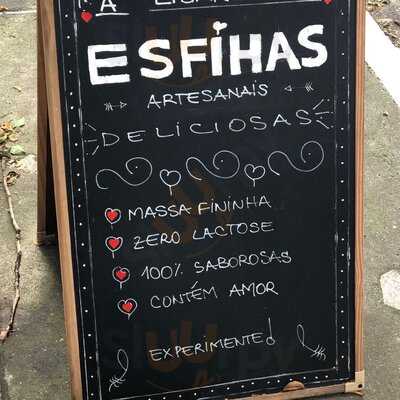 A
ESFIHAS
ARTESANAIS
DELICIOSAS
MASSA FININHA
ZERO LACTOSE
100% SABOROSAS
CONTÉM AMOR
EXPERIMENTE!